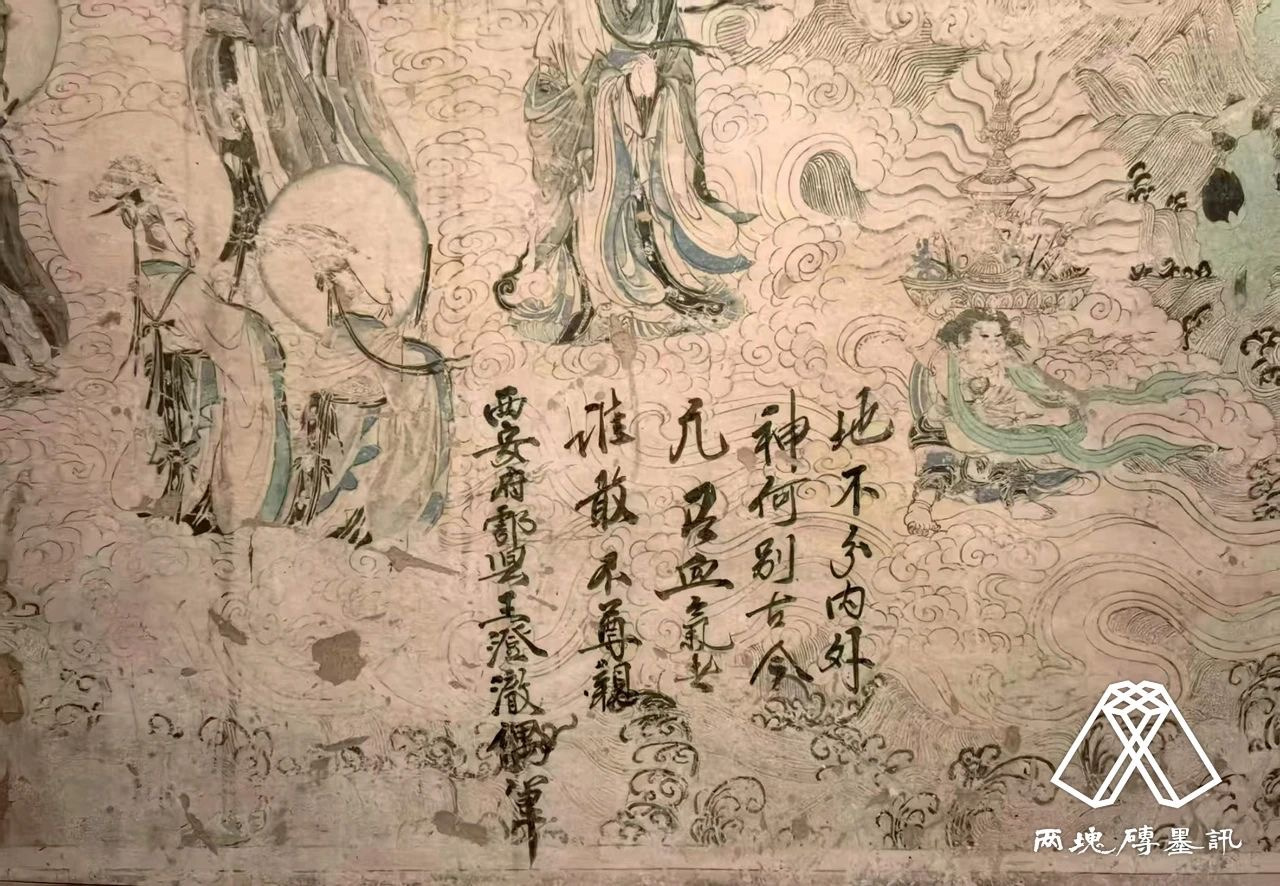 地不分内外
神何别古今
凡有血氣者
誰敢不尊親
西安府鄠县王澄澈偶筆
两塊磚墨訊